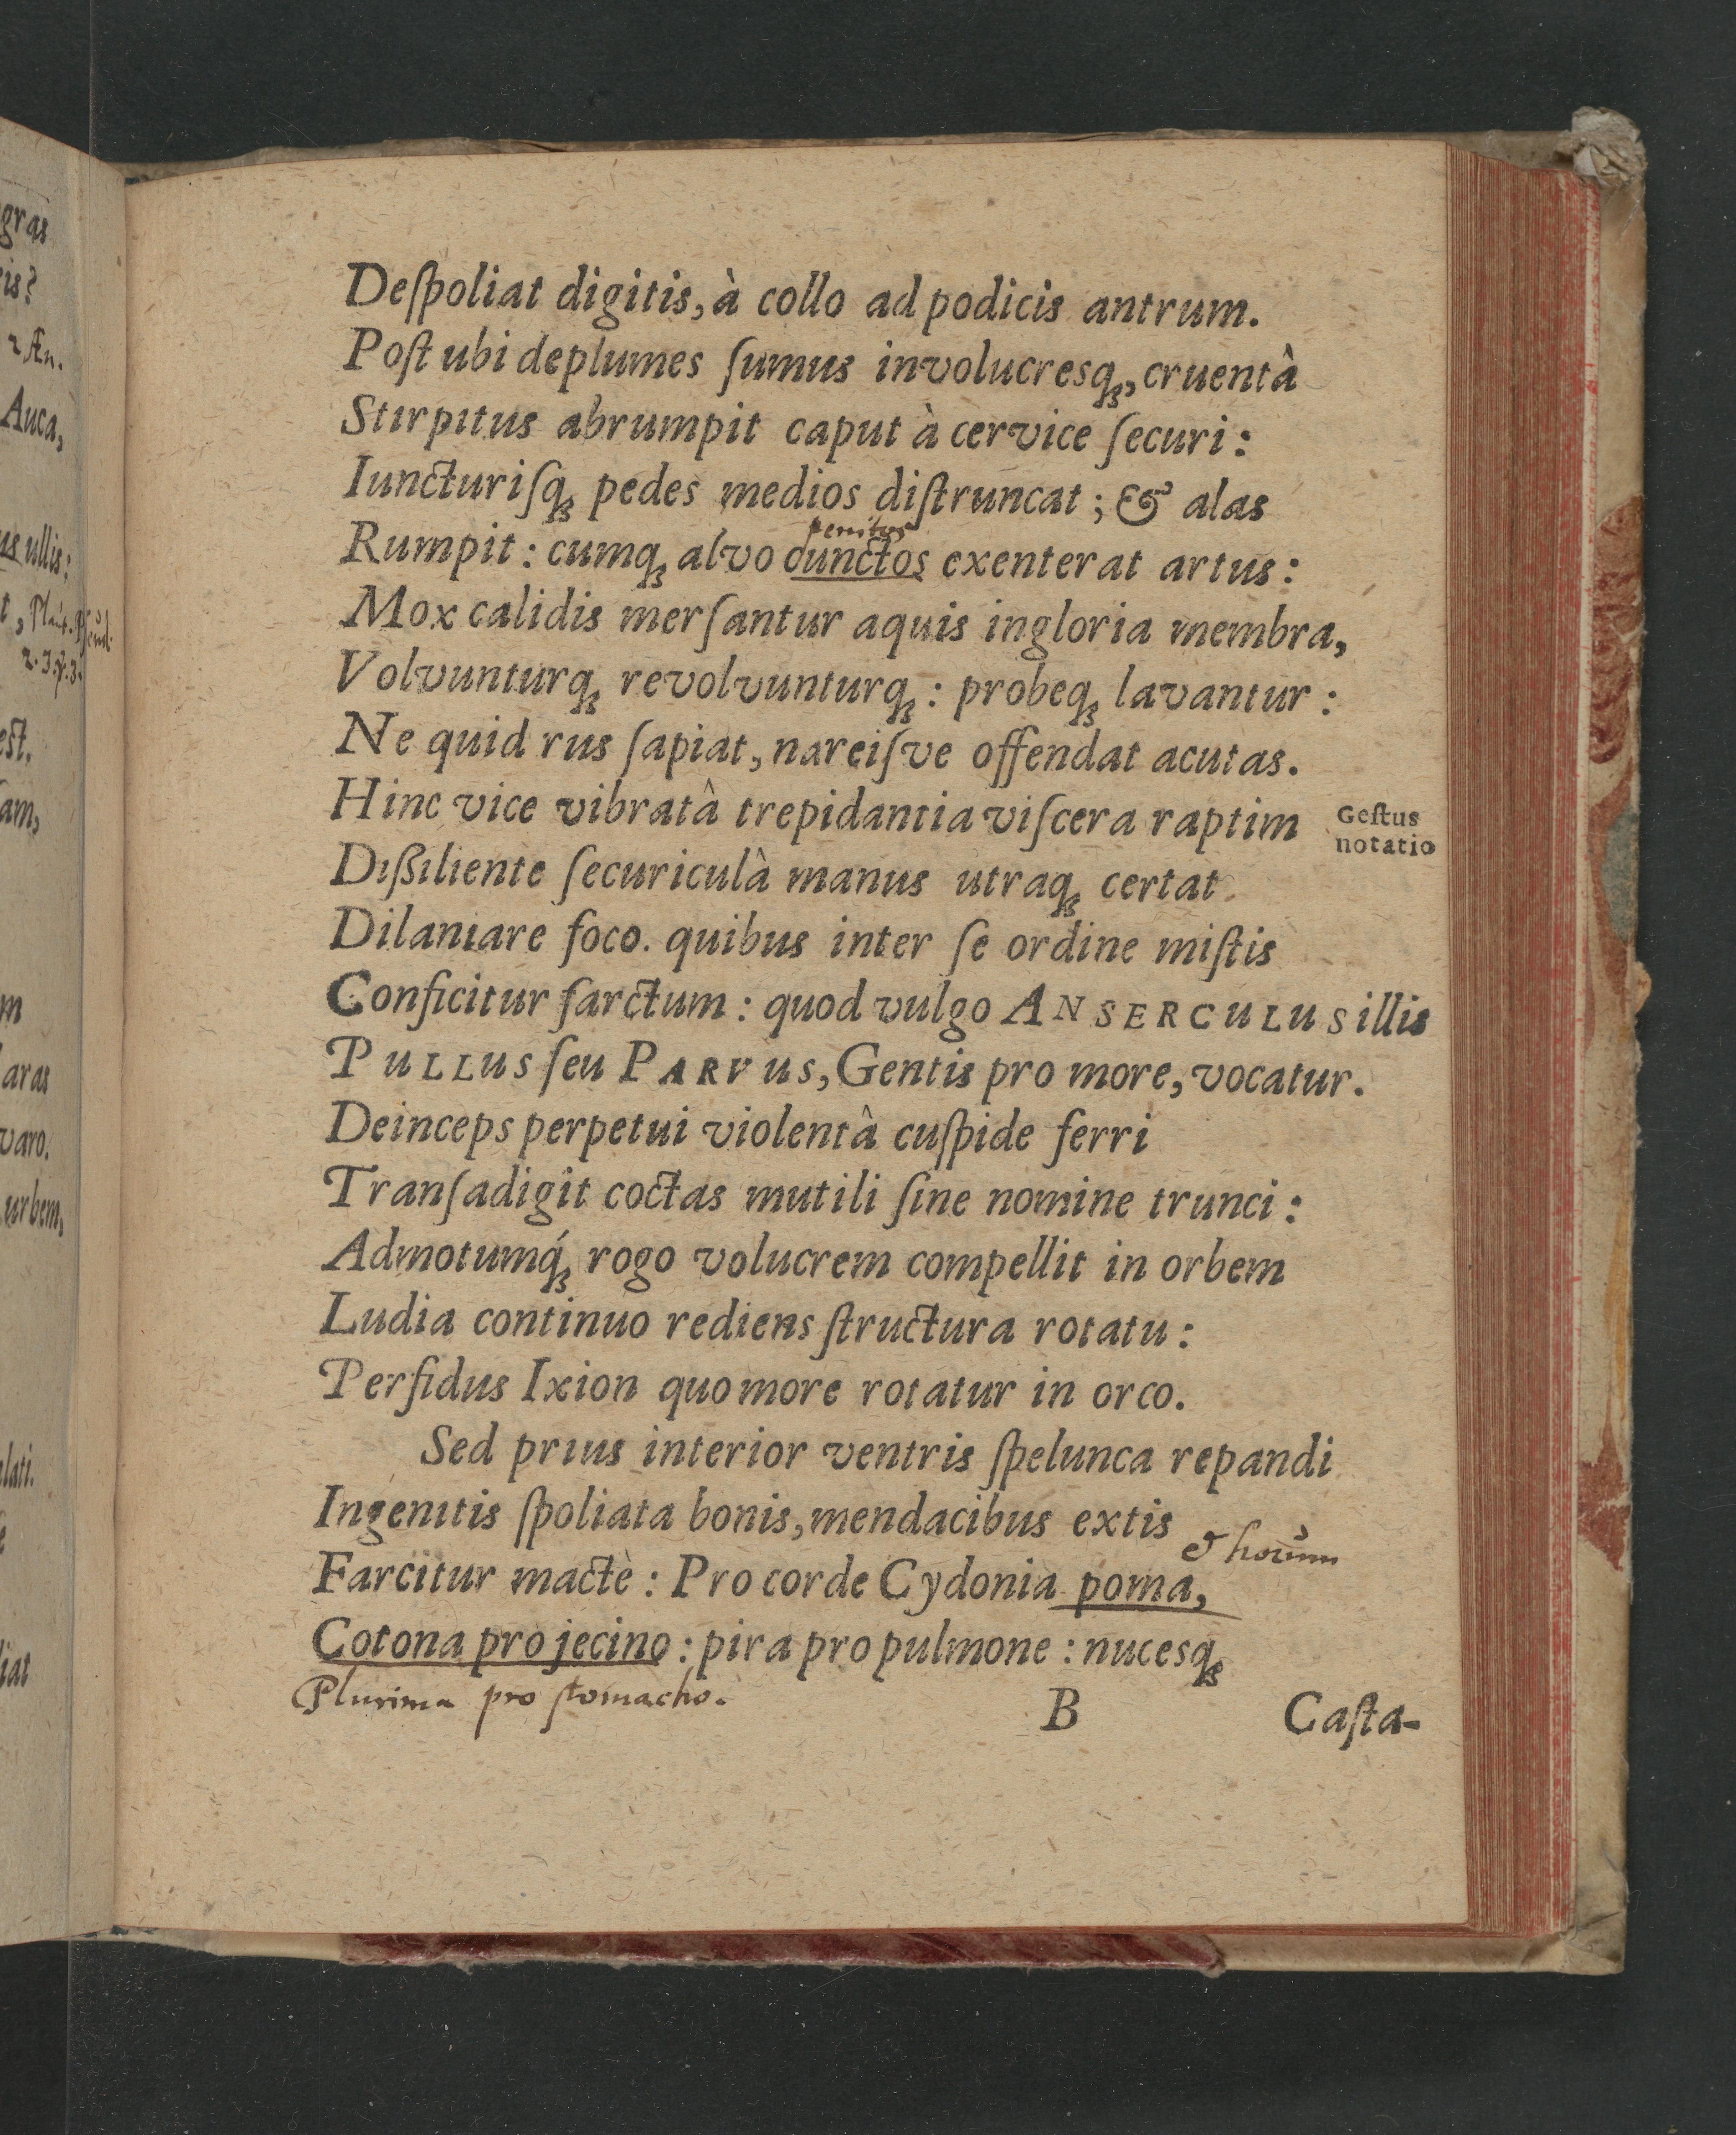 gras
is?
2 Æn.
Auca,
us ullis:
t, Plaut. Pseud.
2. 3. ℣. 3.
est.
am,
m
aras
varo.
urbem,
lati.
e
iat
Deſpoliat digitis, à collo ad podicis antrum.
Poſt ubi deplumes ſumus involucresq́ꝫ, cruentâ
Stirpitus abrumpit caput à cervice ſecuri:
Iuncturiſqꝫ pedes medios diſtruncat; & alas
penitus
Rumpit: cumqꝫ alvo cunctos exenterat artus:
Mox calidis merſantur aquis ingloria membra,
Volvunturqꝫ revolvunturqꝫ: probeqꝫ lavantur:
Ne quid rus ſapiat, nareiſve offendat acutas.
Hinc vice vibratâ trepidantia viſcera raptim
Geſtus
notatio
Dißiliente ſecuriculâ manus utraqꝫ certat
Dilaniare foco. quibus inter ſe ordine miſtis
Conficitur farctum: quod vulgo ANSERCULUS illis
PULLUS ſeu PARVUS, Gentis pro more, vocatur.
Deinceps perpetui violentâ cuſpide ferri
Tranſadigit coctas mutili ſine nomine trunci:
Admotumq́ꝫ rogo volucrem compellit in orbem
Ludia continuo rediens ſtructura rotatu:
Perfidus Ixion quo more rotatur in orco.
Sed prius interior ventris ſpelunca repandi
Ingenitis ſpoliata bonis, mendacibus extis
& horum
Farcitur mactè: Pro corde Cydonia poma,
Cotona pro jecino: pira pro pulmone: nucesqꝫ
Plurima pro ſtomacho.
B
Caſta-